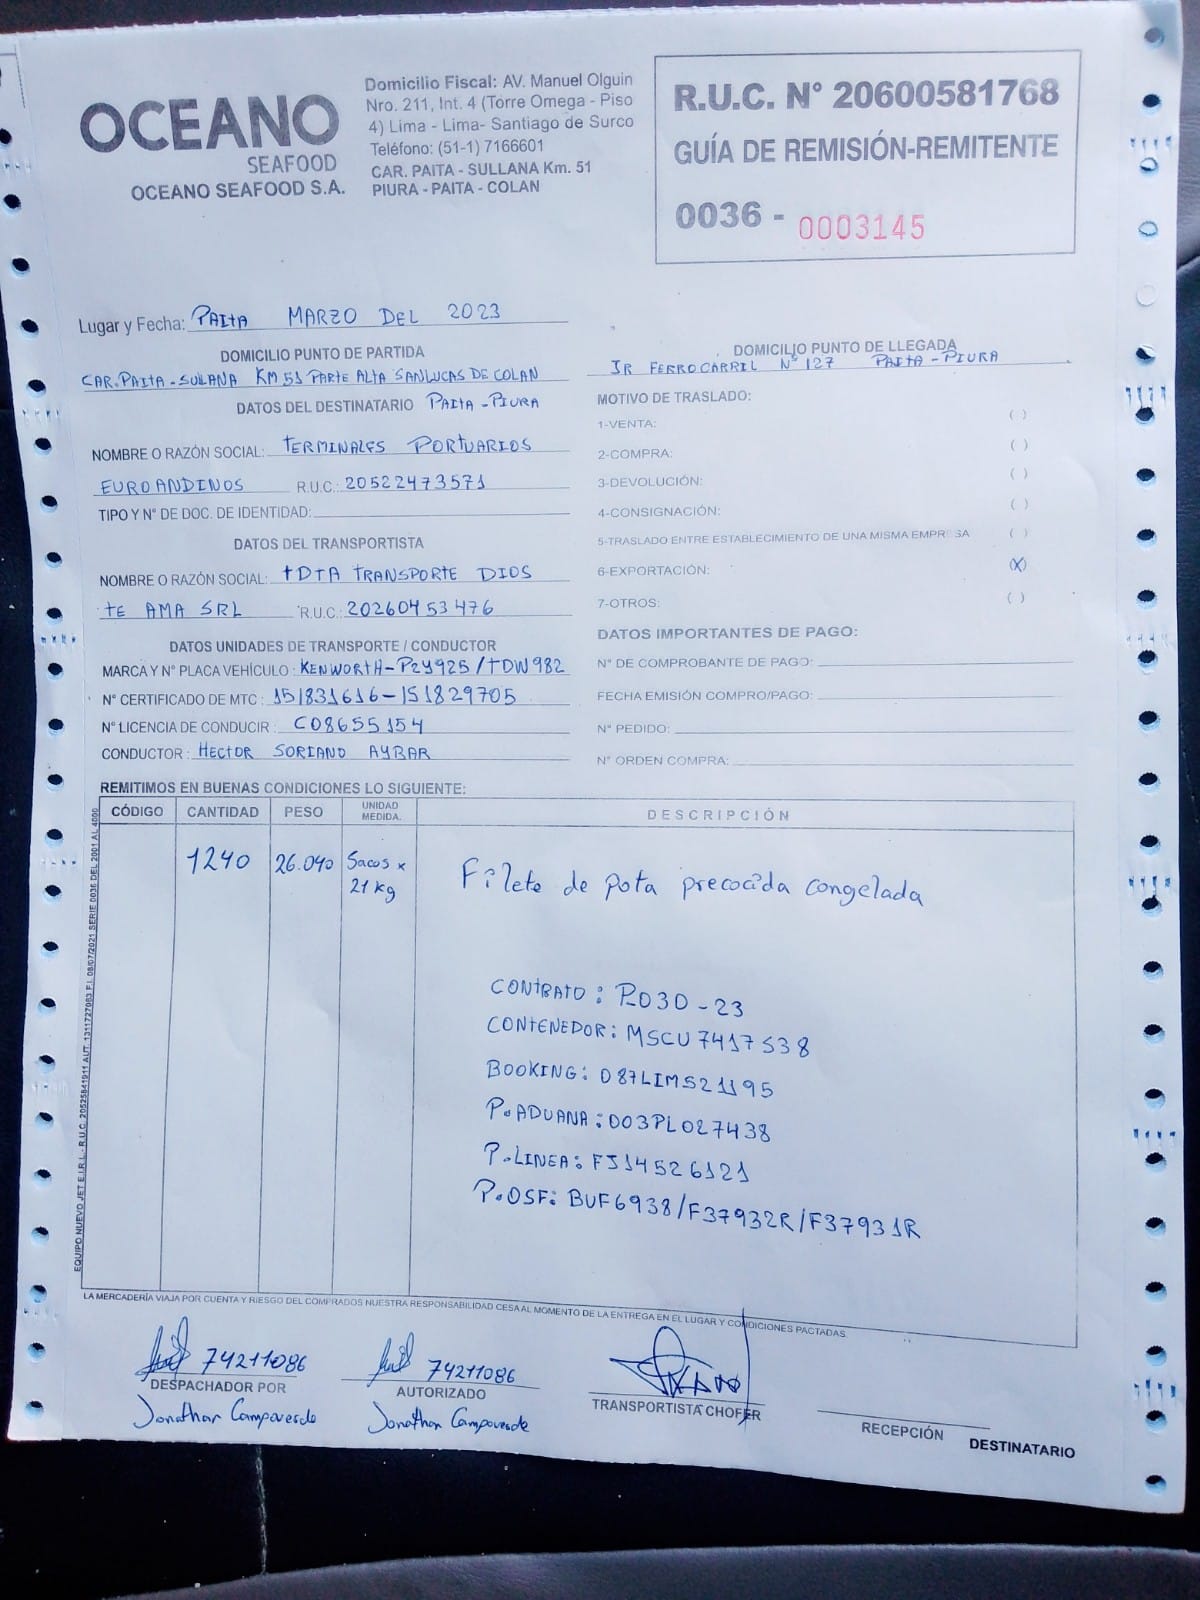 OCEANO
SEAFOOD
OCEANO SEAFOOD S.A.
Domicilio Fiscal: AV. Manuel Olguin
Nro. 211, Int. 4 (Torre Omega - Piso
4) Lima - Lima- Santiago de Surco
Teléfono: (51-1) 7166601
CAR. PAITA - SULLANA Km. 51
PIURA - PAITA - COLAN
R.U.C. N° 20600581768
GUÍA DE REMISIÓN-REMITENTE
0036 - 0003145
Lugar y Fecha: PAITA MARZO DEL 2023
DOMICILIO PUNTO DE PARTIDA
CAR. PAITA - SULLANA KM 51 PARTE ALTA SAN LUCAS DE COLAN
DATOS DEL DESTINATARIO PAITA - PIURA
NOMBRE O RAZÓN SOCIAL: TERMINALES PORTUARIOS
EUROANDINOS R.U.C.: 20522473571
TIPO Y N° DE DOC. DE IDENTIDAD:
DATOS DEL TRANSPORTISTA
NOMBRE O RAZÓN SOCIAL: TDTA TRANSPORTE DIOS
TE AMA SRL R.U.C.: 20260453476
DATOS UNIDADES DE TRANSPORTE / CONDUCTOR
MARCA Y N° PLACA VEHÍCULO : KENWORTH - P2Y925 / TDW982
N° CERTIFICADO DE MTC : 151831616 - 151829705
N° LICENCIA DE CONDUCIR : C08655154
CONDUCTOR : HECTOR SORIANO AYBAR
DOMICILIO PUNTO DE LLEGADA
JR FERROCARRIL N° 127 PAITA - PIURA
MOTIVO DE TRASLADO:
1-VENTA: ( )
2-COMPRA: ( )
3-DEVOLUCIÓN: ( )
4-CONSIGNACIÓN: ( )
5-TRASLADO ENTRE ESTABLECIMIENTO DE UNA MISMA EMPRESA ( )
6-EXPORTACIÓN: (X)
7-OTROS: ( )
DATOS IMPORTANTES DE PAGO:
N° DE COMPROBANTE DE PAGO:
FECHA EMISIÓN COMPRO/PAGO:
N° PEDIDO:
N° ORDEN COMPRA:
REMITIMOS EN BUENAS CONDICIONES LO SIGUIENTE:
CÓDIGO CANTIDAD PESO UNIDAD MEDIDA. DESCRIPCIÓN
1240 26.040 Sacos x 21 kg Filete de pota precocida congelada
CONTRATO : P030 - 23
CONTENEDOR : MSCU 7417538
BOOKING : 087LIM521195
P. ADUANA : 003PL027438
P. LINEA : FJ14526121
P. OSF: BUF6938/F37932R/F37931R
EQUIPO NUEVO JET E.I.R.L - R.U.C. 20525841911 AUT. 1311727083 F.I. 08/07/2021 SERIE 0036 DEL 2001 AL 4000
LA MERCADERÍA VIAJA POR CUENTA Y RIESGO DEL COMPRADOS NUESTRA RESPONSABILIDAD CESA AL MOMENTO DE LA ENTREGA EN EL LUGAR Y CONDICIONES PACTADAS
74211086
DESPACHADOR POR
Jonathan Campoverde
74211086
AUTORIZADO
Jonathan Campoverde
TRANSPORTISTA CHOFER
RECEPCIÓN DESTINATARIO